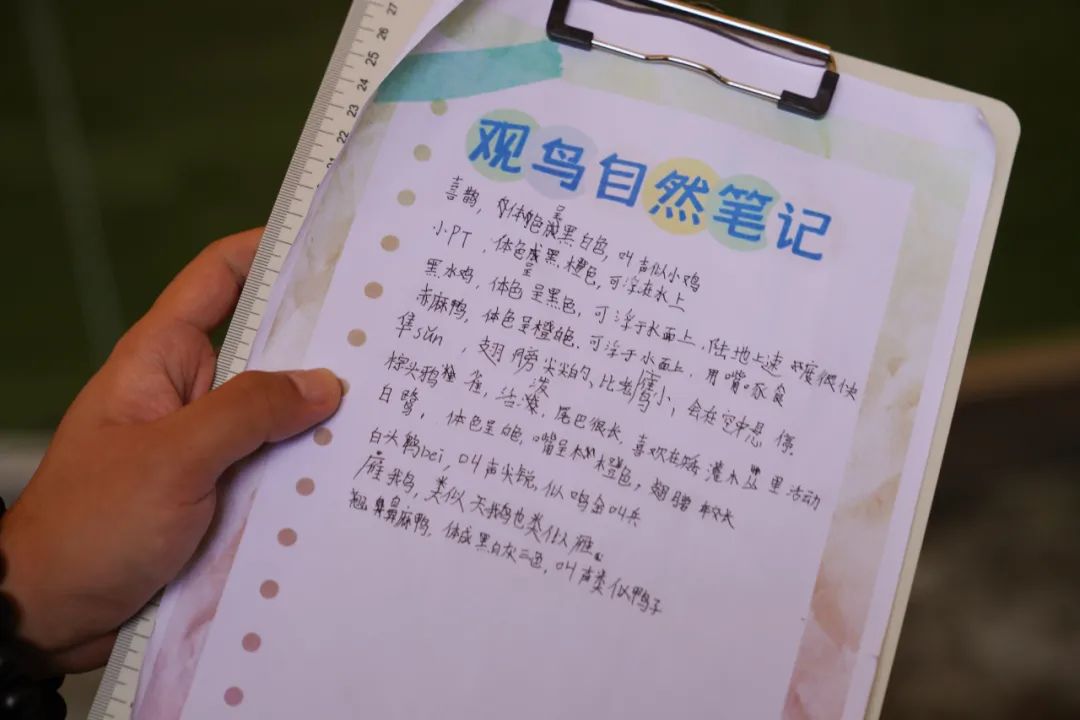 27
26
25
24
23
22
21
观鸟自然笔记
喜鹊，体色呈黑白色，叫声似小鸡
小PT，体色呈黑橙色，可浮在水上
黑水鸡，体色呈黑色，可浮于水面上，陆地上速度很快
赤麻鸭，体色呈橙色，可浮于水面上，用嘴啄食
隼sǔn，翅膀尖尖的，比老鹰小，会在空中悬停。
棕头鸦雀，活泼，尾巴很长，喜欢在矮灌木丛里活动
白鹭，体色呈白色，嘴呈橙色，翅膀较长
白头鹎bei，叫声尖锐，似鸣金叫兵
雁鹅，类似天鹅也类似雁。
翘鼻麻鸭，体成黑白灰三色，叫声类似鸭子